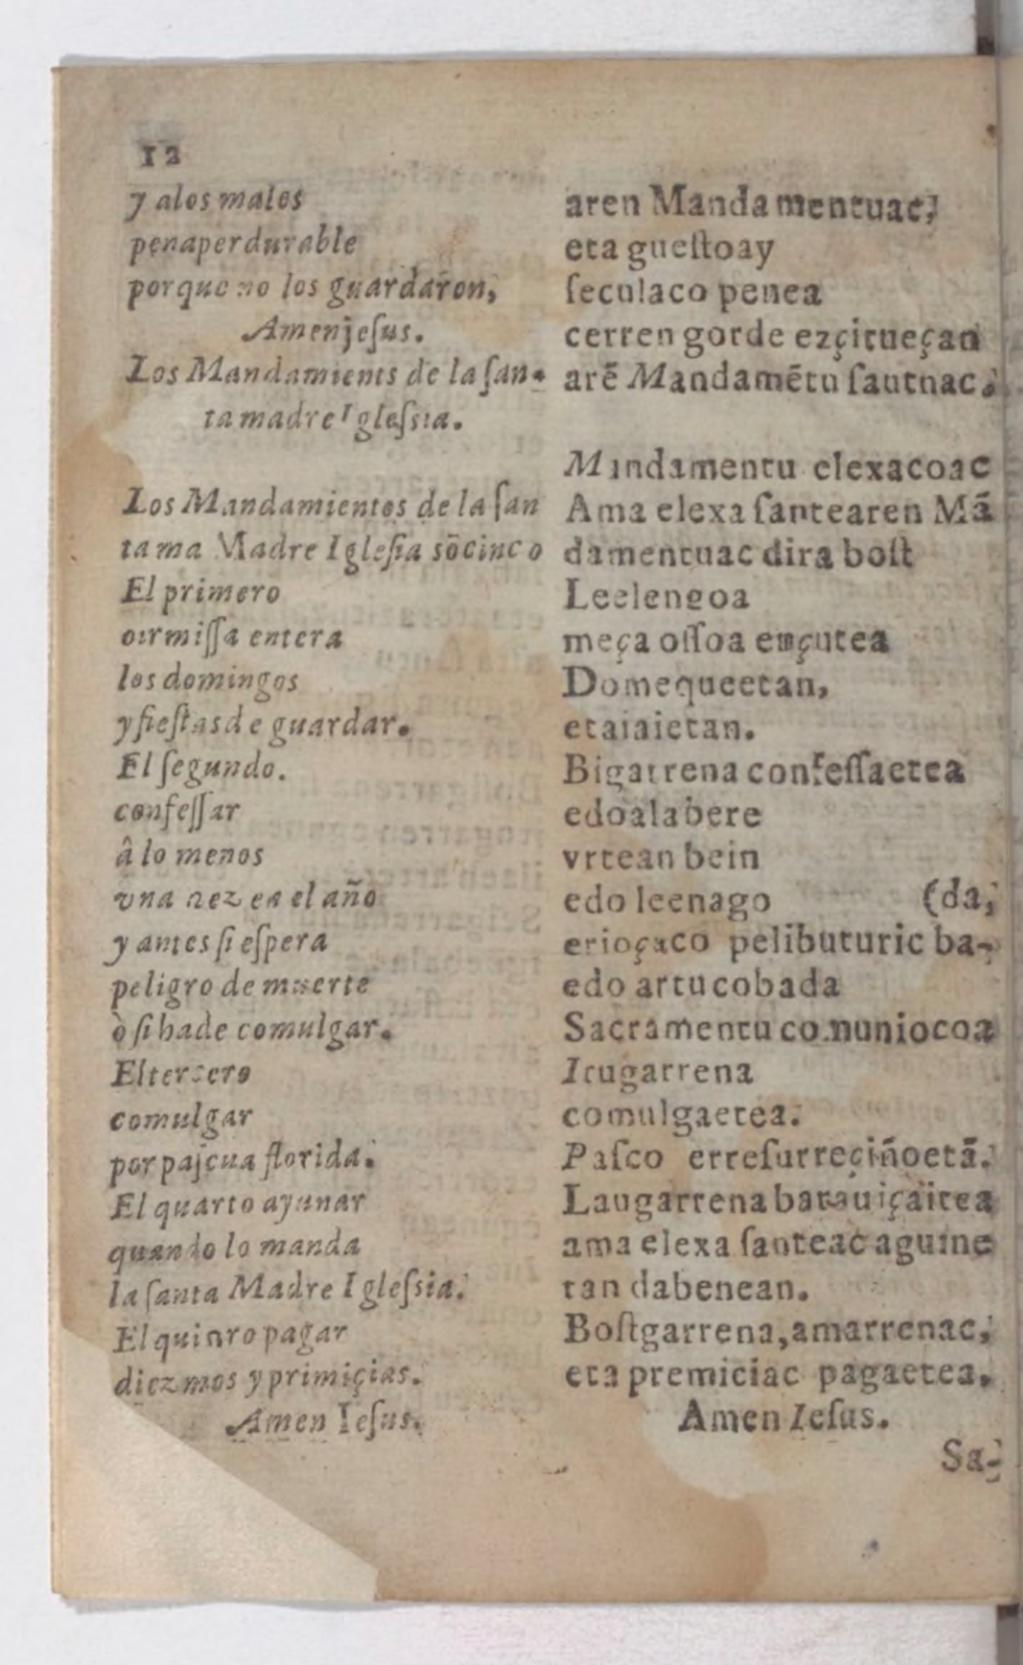 12
y alos malos
penaperdurable
porque no los guardaron,
Amen jeſus.
Los Mandamients de la ſan-
ta madre Igleſsia.
Los Mandamientos de la ſan
ta ma Madre Igleſia sõ cinco
El primero
oir miſſa entera
los domingos
y fieſtas de guardar.
El ſegundo.
confeſſar
â lo menos
vna vez en el año
y antes ſi eſpera
peligro de muerte
ò ſi hade comulgar.
El tercero
comulgar
por paſcua florida.
El quarto ayunar
quando lo manda
la ſanta Madre Igleſsia.
El quinto pagar
diezmos y primiçias.
Amen Ieſus.
aren Mandamentuac,
eta gueſtoay
ſeculaco penea
cerren gorde ezçitueçan
arē Mandamētu ſautuac.
Mandamentu elexacoac
Ama elexa ſantearen Mā
damentuac dira boſt
Leelengoa
meça oſſoa ençutea
Domequeetan,
etaiaietan.
Bigarrena confeſſaetea
edoalabere
vrtean bein
edo leenago (da,
erioçaco pelibuturic ba-
edo artucobada
Sacramentu comuniocoa
Irugarrena
comulgaetea.
Paſco erreſurreçiñoetā.
Laugarrena barauiçaitea
ama elexa ſanteac aguine
tan dabenean.
Boſtgarrena, amarrenac,
eta premiciac pagaetea.
Amen Ieſus.
Sa-